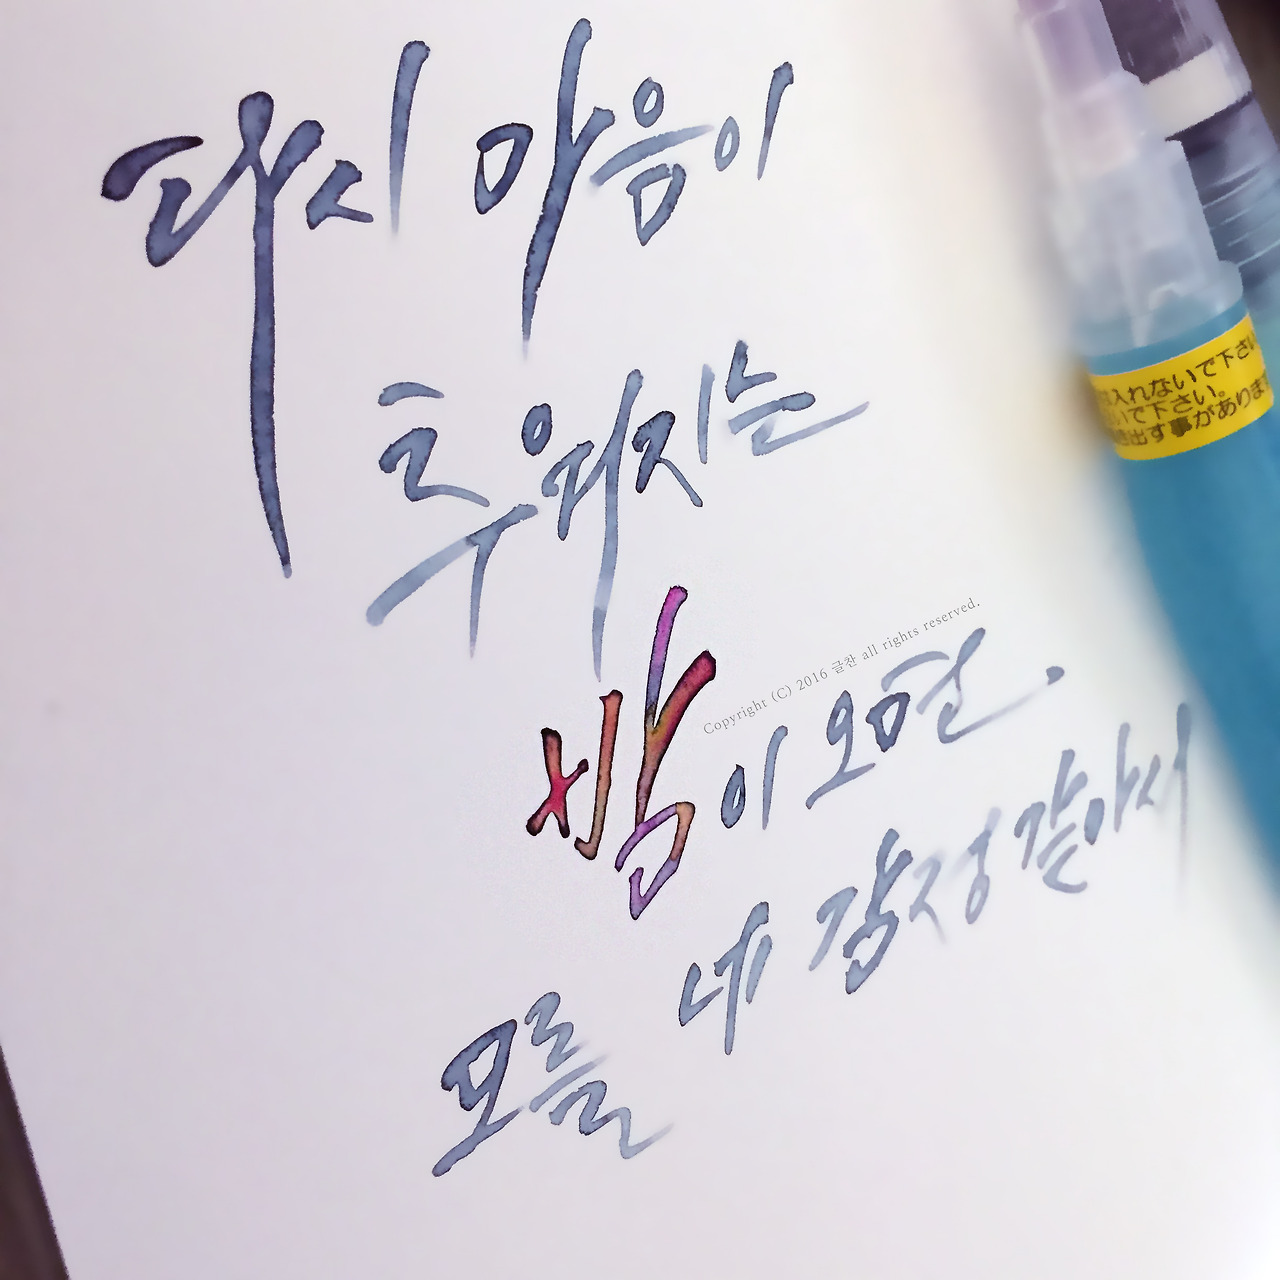 다시 마음이
추워지는
밤이 오면.
모를 네 감정 같아서
Copyright (C) 2016 글찬 all rights reserved.
入れないで下さい
いで下さい。
出す事があります